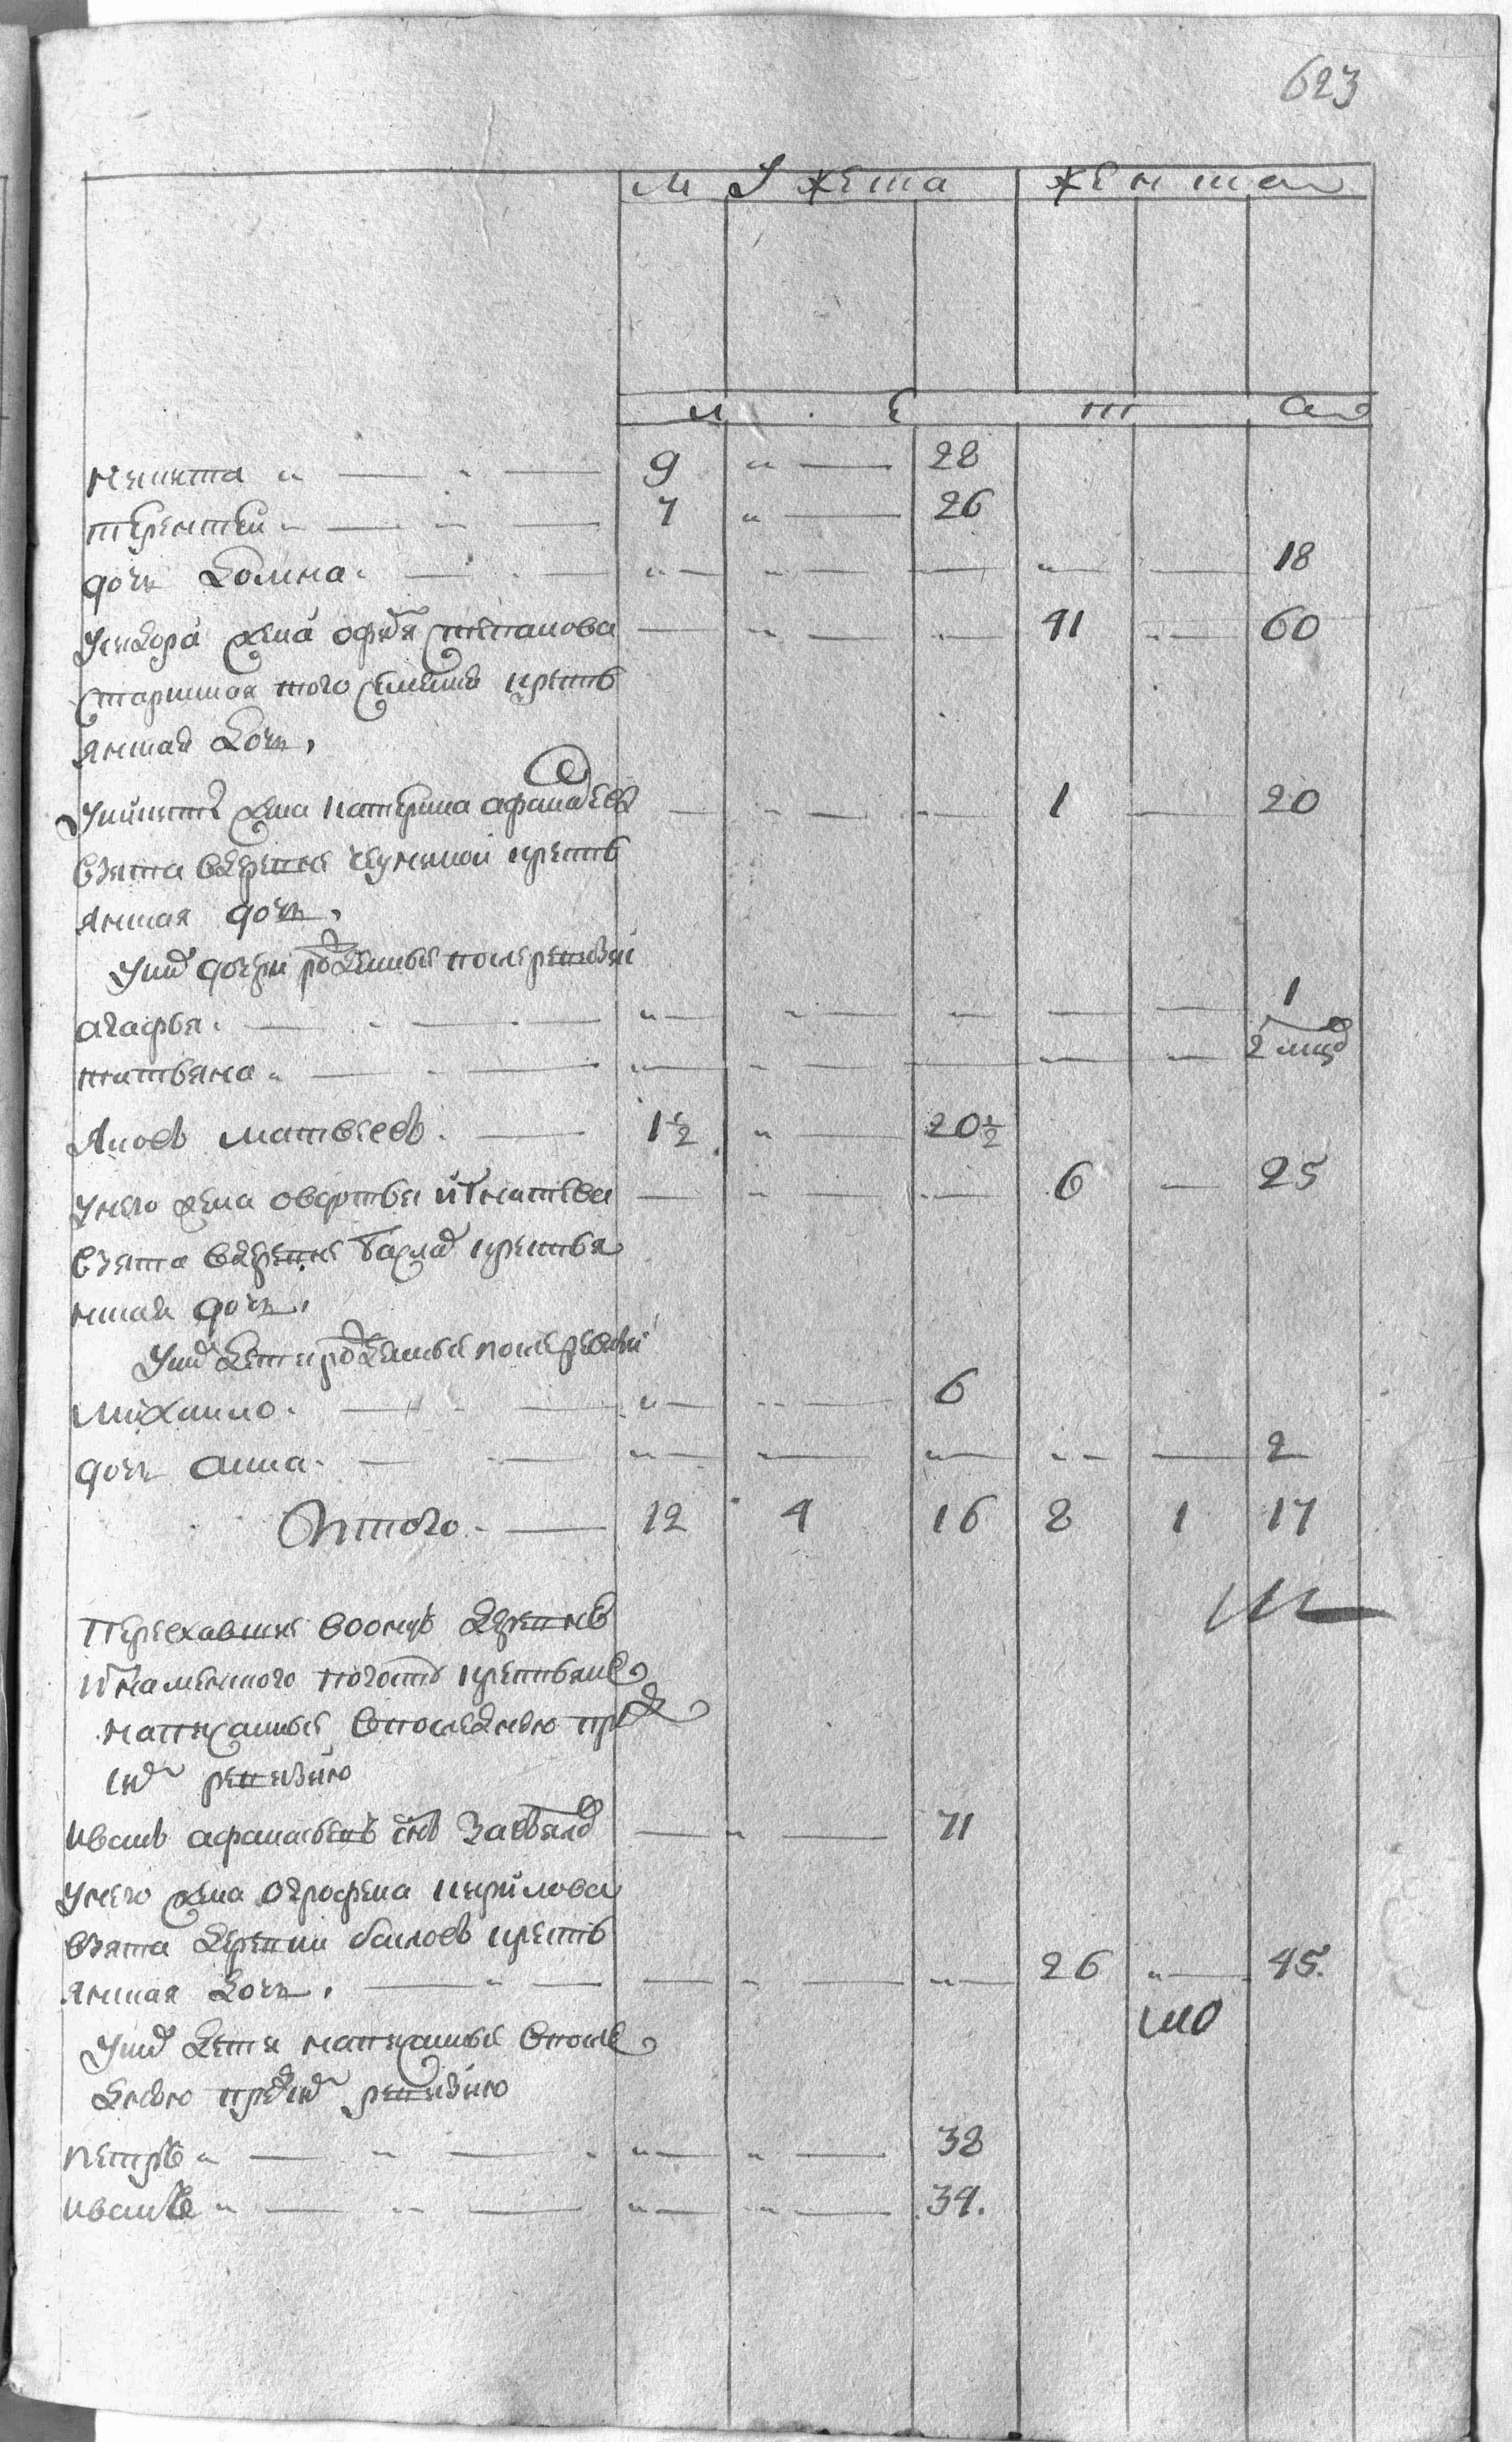 623
мужеска женска
лета
никита 9 28
терентеи 7 26
дочь домна 18
у сидора жена офдя степанова 41 60
старинная того селения кресть
янская дочь
у никиты жена катерина афанасева 1 20
взята в деревне кресть
янская дочь
у них дочери рожденные после ревизии
агафья 1
татьяна 2 мцд
Яков матвеев 1½ 20½
у него жена овдотья игнатева 6 25
взята в деревне крестья
нская дочь
у них дети рожденные после ревизии
михаило 6
дочь анна 2
Итого 12 4 16 8 1 17
переехавшие в оную деревню
ис каменного погоста крестьяне
написанные в последнюю пред
сию ревизию
иванъ афанасьевъ снъ 71
у него жена огрофена кирилова
взята деревни кресть
янская дочь 26 45.
у них дети написанные в после
днюю пред сию ревизию
петръ 38
иванъ 34.